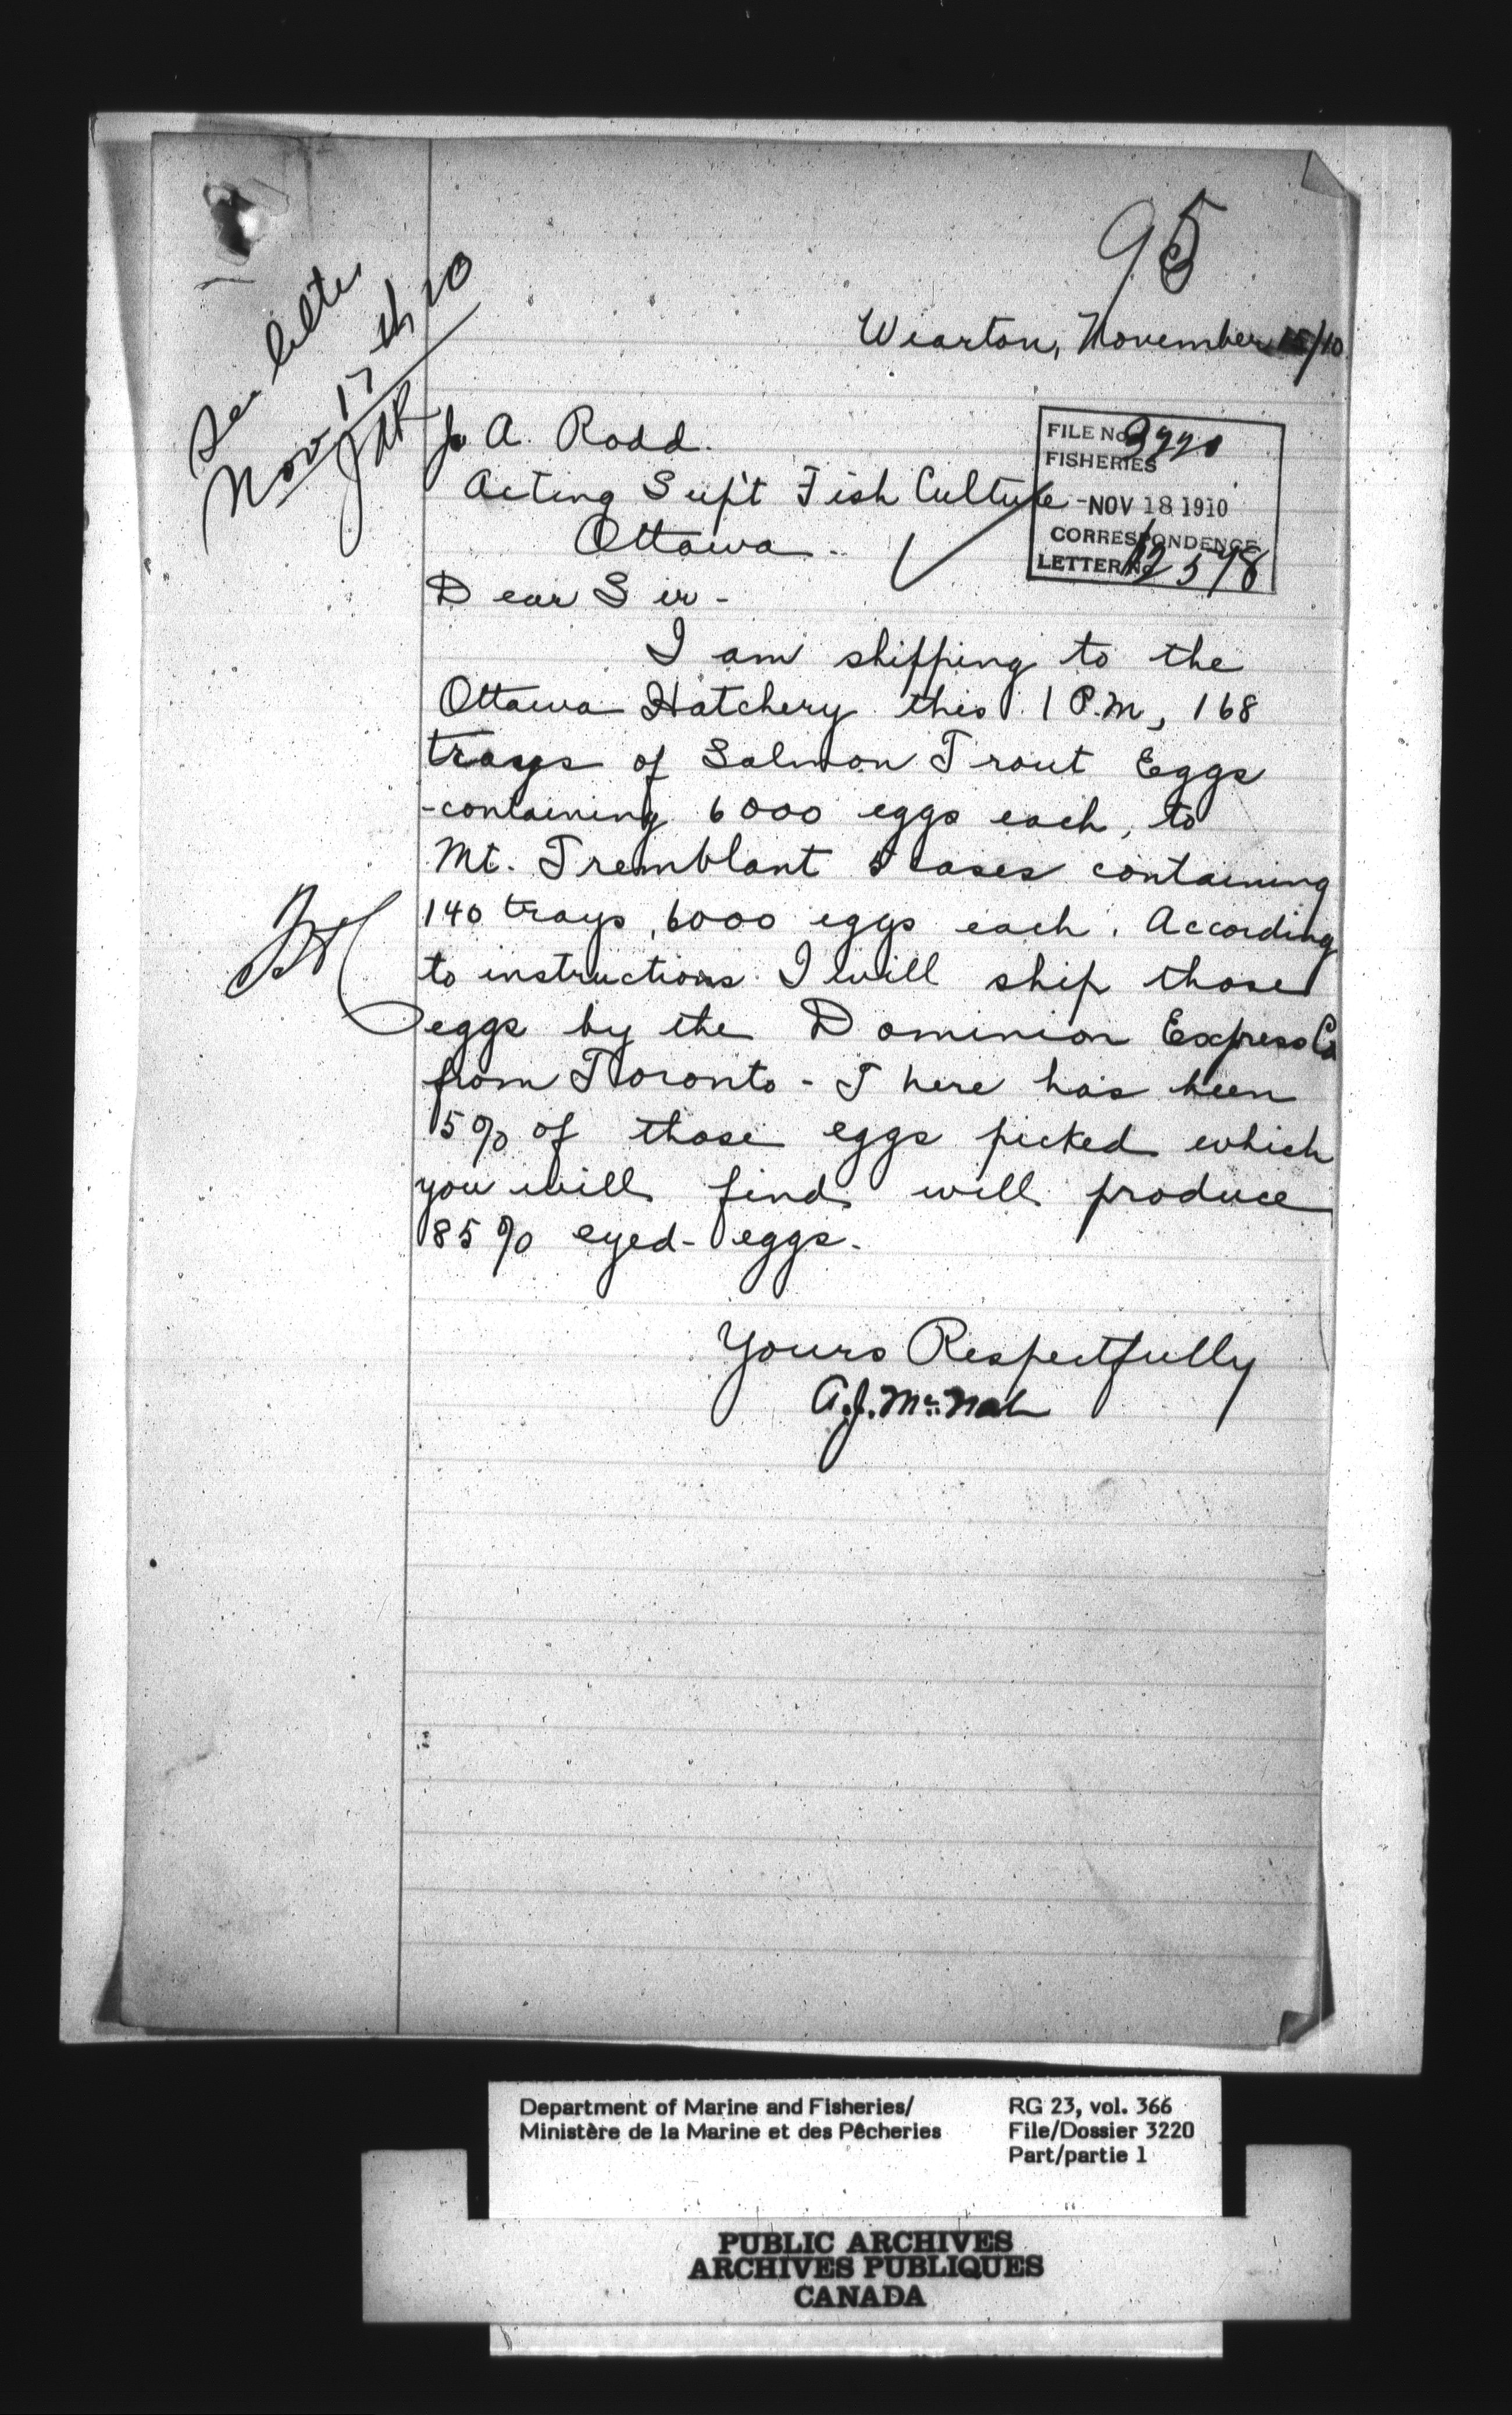 95
Wiarton, November 15/10
See letter
Nov 17th 10
JAR
J. A. Rodd.
Acting Sup't Fish Culture
Ottawa.
FILE No. 3220
FISHERIES
-NOV 18 1910
CORRESPONDENCE
LETTER No. 12578
Dear Sir-
I am shipping to the
Ottawa Hatchery this 1 P.M, 168
trays of Salmon Trout Eggs
-containing 6000 eggs each, to
Mt. Tremblant 5 cases containing
140 trays, 6000 eggs each. According
to instructions I will ship those
eggs by the Dominion Express Co
from Toronto - There has been
15% of those eggs picked which
you will find will produce
85% eyed- eggs-
Yours Respectfully
A.J. McNab
Department of Marine and Fisheries/
Ministère de la Marine et des Pêcheries
RG 23, vol. 366
File/Dossier 3220
Part/partie 1
PUBLIC ARCHIVES
ARCHIVES PUBLIQUES
CANADA